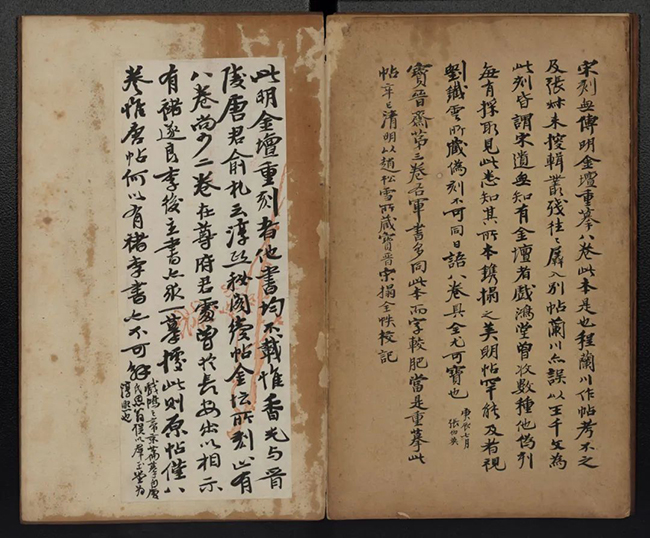 宋刻無傳明金壇重摹八卷此本是也程蘭川作帖考不之
及張叔未搜輯叢殘往之羼入別帖蘭川亦誤以王千文為
此刻昔謂宋遺無知有金壇者戲鴻堂曾收數種他偽刻
每有採取見此悉知其所本鐫搨之美明帖罕能及者視
劉鐵雲所藏偽刻不可同日語八卷具全尤可寶也
庚辰七月
張伯英
寶晉齋第三卷右軍書多同此本而字較肥當是重摹此
帖辛巳清明以趙松雪所藏寶晉宋搨全帙校記
此明金壇重刻者他書均不載惟香光與晉
陵唐君俞札云淳熙秘閣續帖金壇所刻止有
八卷尚少二卷在尊府君處曾於長安出以相示
有褚遂良李後主書乞永一摹據此則原帖僅八
卷惟唐帖何以有褚李書也不可解